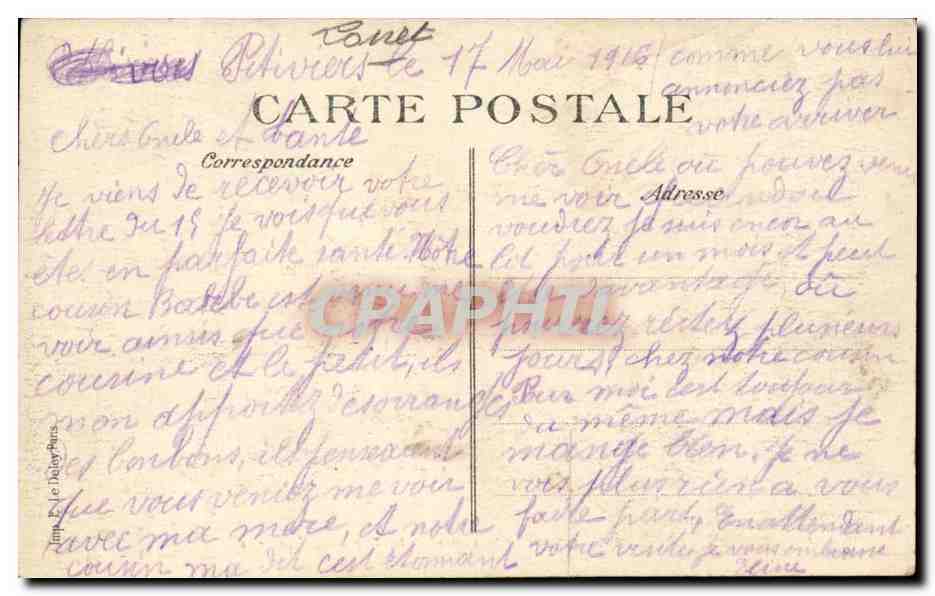 Loiret
Pitiviers le 17 Mai 1916
CARTE POSTALE
Chers Oncle et Tante
Correspondance
Je viens de recevoir votre
lettre du 15 je vois que vous
êtes en parfaite santé. Notre
cousin est venu me
voir ainsis que
cousine et le petit, ils
mon apportez des oranges
des bonbons, ils pensaient
que vous veniez me voir
avec ma mère, et notre
cousin ma dit c'est étonnant
comme vous lui
annonciez pas
votre arriver
Cher Oncle ou pouvez venir
me voir
Adresse
voudrez je suis encor au
lit pour un mois et peut
davantage, ou
pouvez restez plusieurs
jours, chez notre cousin
Pour moi c'est toujour
du même mais je
mange bien, je ne
vois plus rien a vous
faire part, En attendant
votre visite je vous embrasse
Imp. E. Le Deley, Paris
CPAPHIL